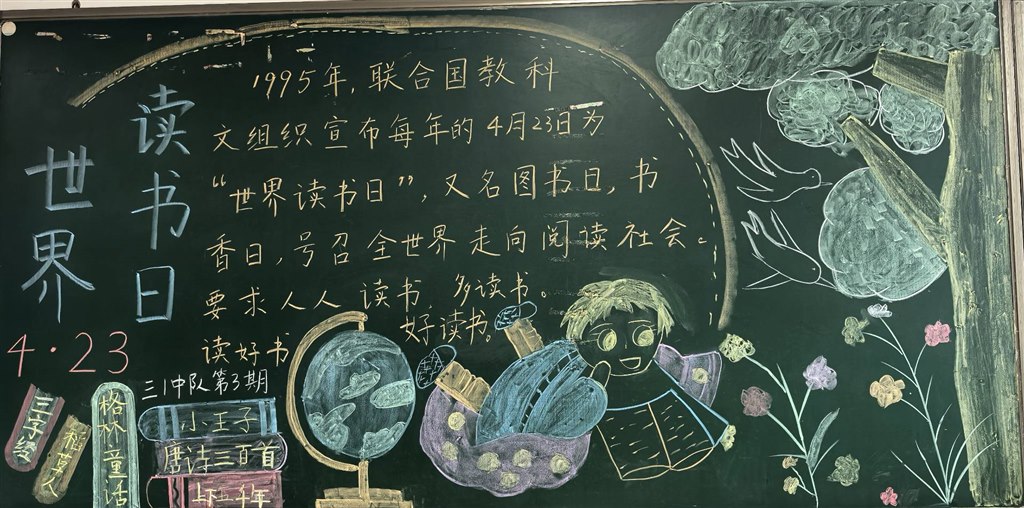 世界
读书日
4·23
1995年,联合国教科
文组织宣布每年的4月23日为
“世界读书日”,又名图书日,书
香日,号召全世界走向阅读社会。
要求人人读书,多读书。
读好书 好读书。
三1中队第3期
三字经
稻草人
格林童话
小王子
唐诗三百首
上下五千年